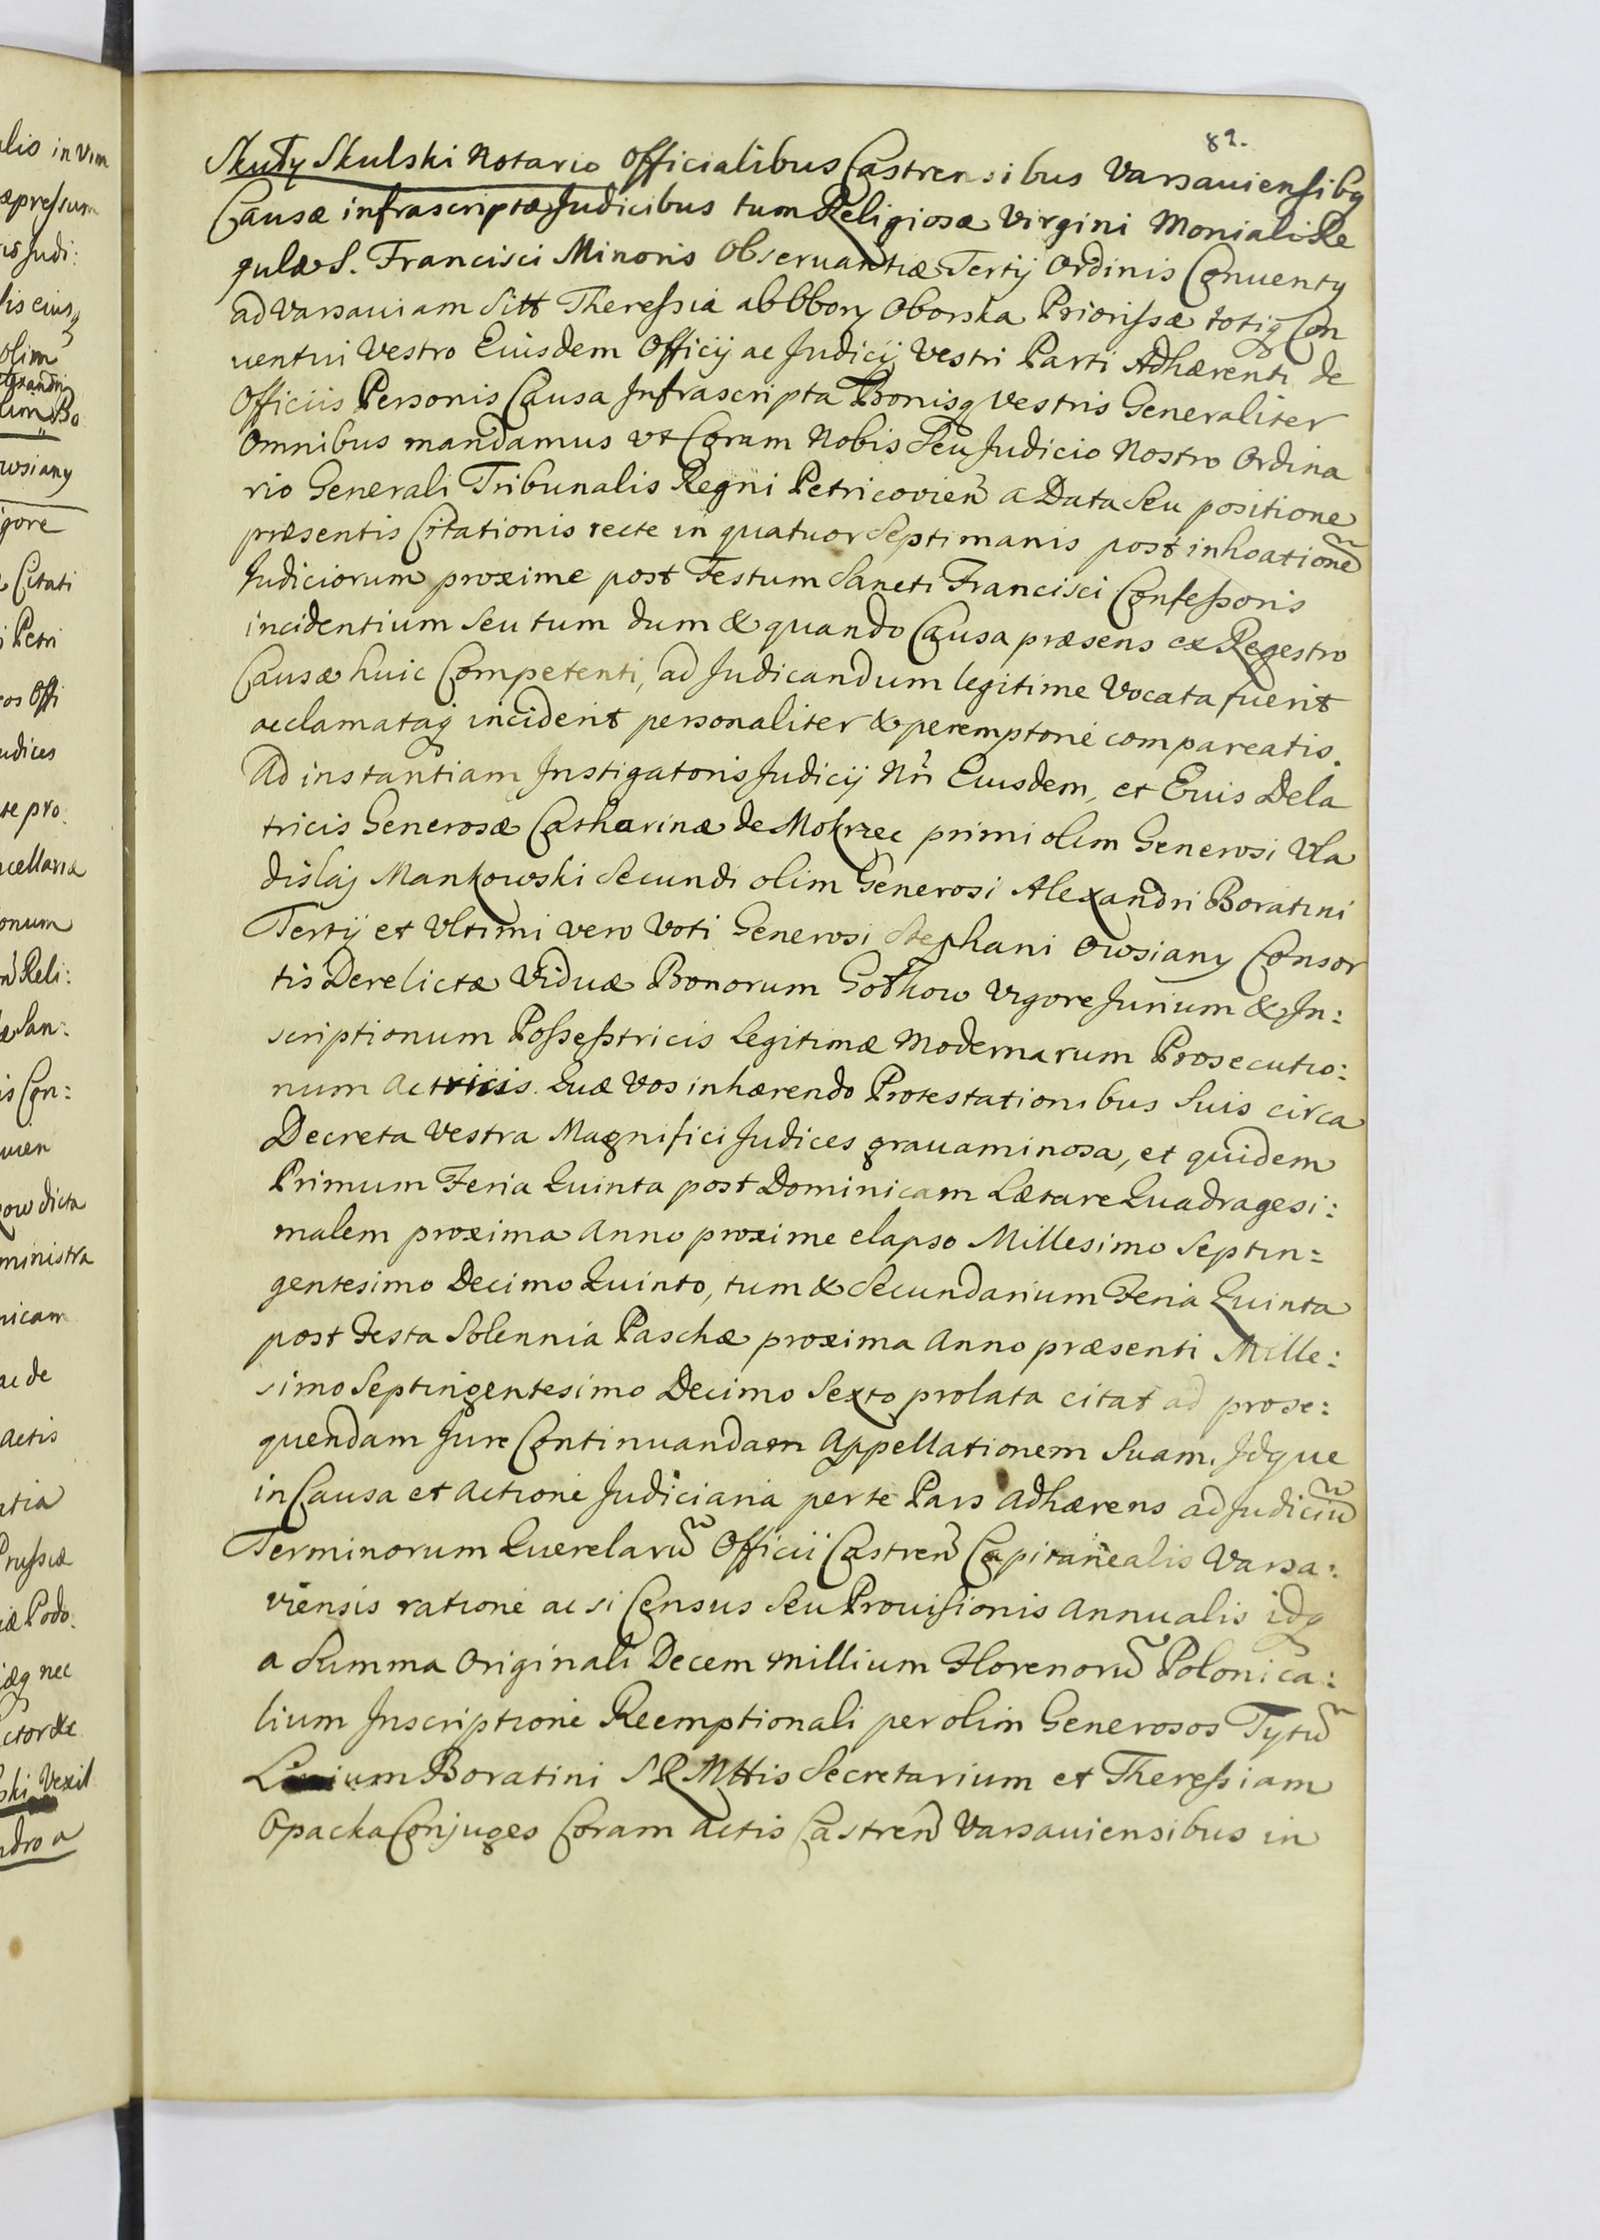 82.
Skudy Skulski Notario Officialibus Castrensibus Varsauiensibq
Causæ infrascriptæ Judicibus tum Religiosæ Virgini Moniali Re
gulæ S. Francisci Minoris Obseruantiæ Tertij Ordinis Conuentq
ad Varsauiam Sitt Theressia ab Obory Oborska Priorissæ totiq Con
uentui Vestro Eiusdem Officij ac Judicij Vestri Parti Adhærenti de
Officiis Personis Causa Infrascripta Bonisq Vestris Generaliter
Omnibus mandamus vt Coram Nobis Seu Judicio Nostro Ordina
rio Generali Tribunalis Regni Petricovien̄ a Data Seu positione
præsentis Citationis recte in quatuor Septimanis post inhoatione~
Judiciorum proxime post Festum Sancti Francisci Confessoris
incidentium Seu tum dum & quando Causa præsens ex Regestro
Causæ huic Competenti, ad Judicandum legitime Vocata fuerit
acclamataq inciderit personaliter & peremptorie compareatis.
Ad instantiam Instigatoris Judicij Nr̄i Eiusdem, et Eius Dela
tricis Generosæ Catharinæ de Mokrzec primi olim Generosi Vla
dislaj Mankowski Secundi olim Generosi Alexandri Boratini
Tertij et Vltimi vero Voti Generosi Stephani Owsiany Consor
tis Derelictæ Viduæ Bonorum Gotkow Vigore Jurium & In:
scriptionum Possesstricis Legitimæ Modernarum Prosecutio:
num Actricis. Quæ Vos inhærendo Protestationibus Suis circa
Decreta Vestra Magnifici Judices grauaminosa, et quidem
Primum Feria Quinta post Dominicam Lætare Quadragesi:
malem proxima Anno proxime elapso Millesimo Septin=
gentesimo Decimo Quinto, tum & Secundarium Feria Quinta
post Festa Solennia Paschæ proxima Anno præsenti Mille:
simo Septingentesimo Decimo Sexto prolata citat ad prose:
quendam Jure Continuandam Appellationem Suam. Idque
in Causa et Actione Judiciaria per te Pars Adhærens ad Judiciu~
Terminorum Querelaru~ Officii Castren̄ Capitanealis Varsa:
viensis ratione ac si Census Seu Prouisionis Annualis idq
a Summa Originali Decem Millium Florenoru~ Polonica:
lium Inscriptione Reemptionali per olim Generosos Tytu~
Boratini S R Mttis Secretarium et Theressiam
Opacka Conjuges Coram Actis Castren̄ Varsauiensibus in